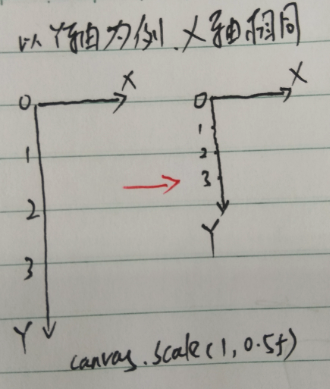 以Y轴为例.X轴相同
X
0
1
2
3
Y
X
0
1
2
3
Y
canvas.scale(1,0.5f)